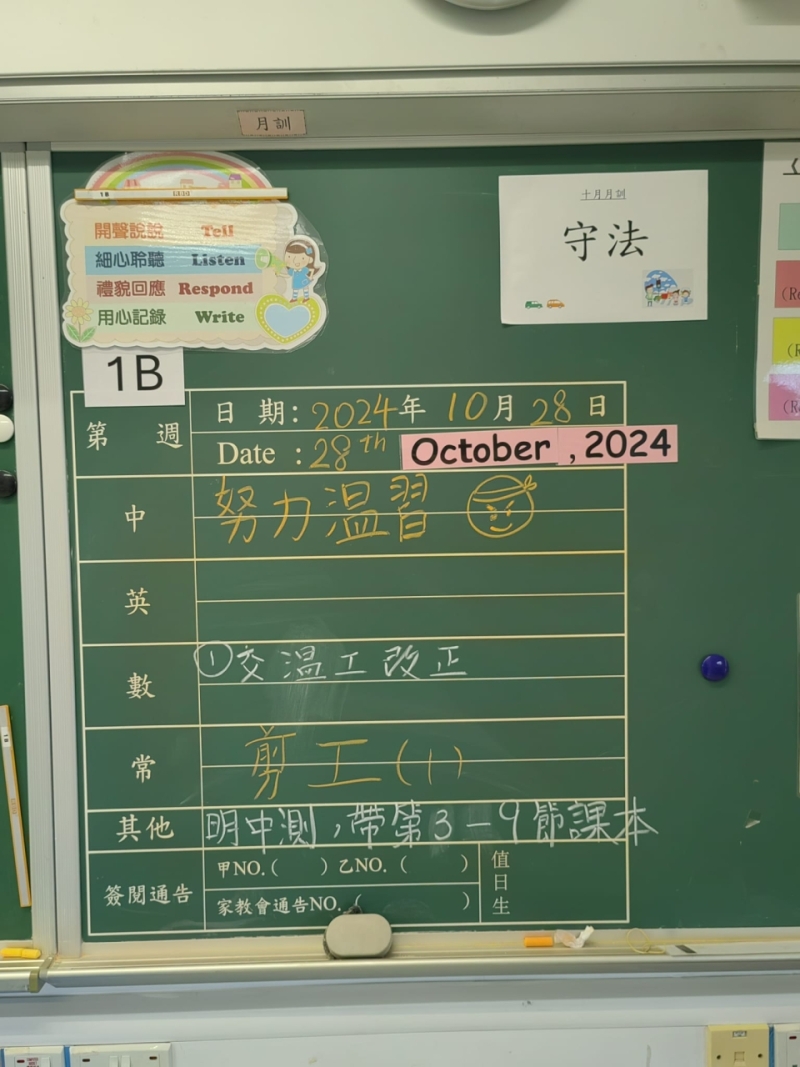 月訓
開聲說說 Tell
細心聆聽 Listen
禮貌回應 Respond
用心記錄 Write
十月月訓
守法
1B
第 週
日 期：2024年 10月 28日
Date : 28th October , 2024
中 努力温習
英
數 ①交温工改正
常 剪工(十)
其他 明中測，帶第3-9節課本
簽閱通告 甲NO.( ) 乙NO. ( )
家教會通告NO. ( )
值日生